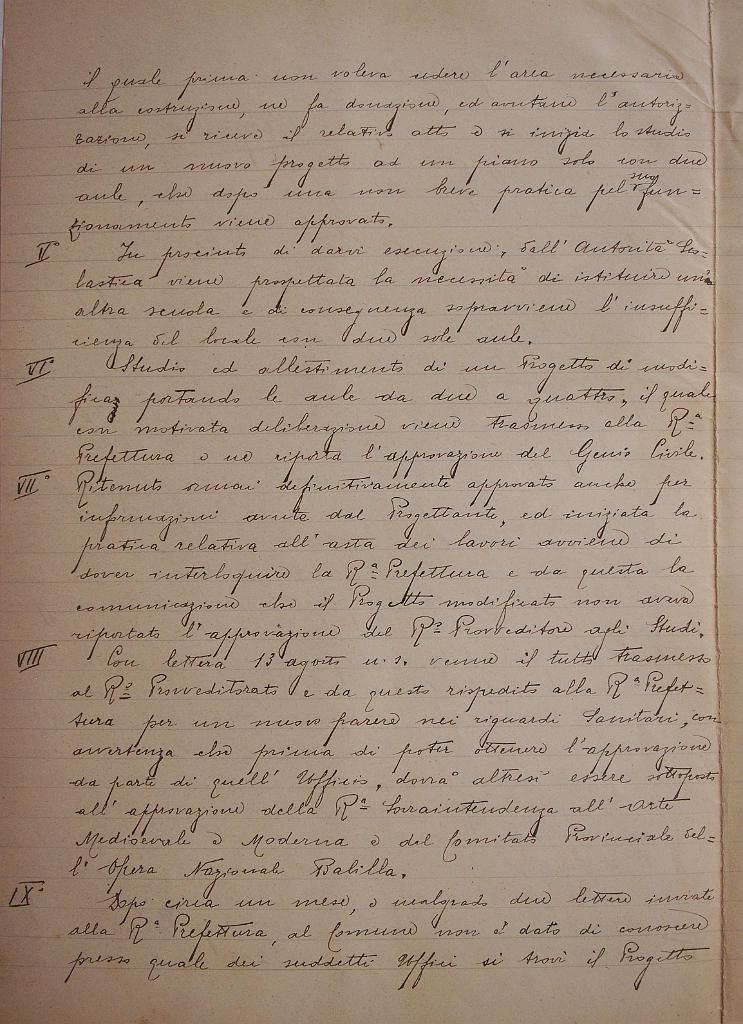 il quale prima non voleva cedere l'area necessaria
alla costruzione, ne fa donazione, ed avutane l'autoriz=
zazione, si riceve il relativo atto e si inizia lo studio
di un nuovo progetto ad un piano solo con due
aule, che dopo una non breve pratica pel suo fun=
zionamento viene approvato.
V° In procinto di darvi esecuzione, dall'Autorità Sco=
lastica viene prospettata la necessità di istituire un'
altra scuola e di conseguenza sopravviene l'insuffi=
cienza del locale con due sole aule.
VI° Studio ed allestimento di un Progetto di modi=
fica, portando le aule da due a quattro, il quale
con motivata deliberazione viene trasmesso alla Rª
Prefettura e ne riporta l'approvazione del Genio Civile.
VII° Ritenuto ormai definitivamente approvato anche per
informazioni avute dal Progettante, ed iniziata la
pratica relativa all'asta dei lavori avviene di
dover interloquire la Rª Prefettura e da questa la
comunicazione che il Progetto modificato non aveva
riportato l'approvazione del R° Provveditore agli Studi.
VIII Con lettera 13 agosto u.s. venne il tutto trasmesso
al R° Provveditorato e da questo rispedito alla Rª Prefet=
tura per un nuovo parere nei riguardi Sanitari, con
avvertenza che prima di poter ottenere l'approvazione
da parte di quell'Ufficio, dovrà altresì essere sottoposto
all'approvazione della Rª Sovraintendenza all'Arte
Medioevale e Moderna e del Comitato Provinciale del=
l'Opera Nazionale Balilla.
IX° Dopo circa un mese, e malgrado due lettere inviate
alla Rª Prefettura, al Comune non è dato di conoscere
presso quale dei suddetti Uffici si trovi il Progetto